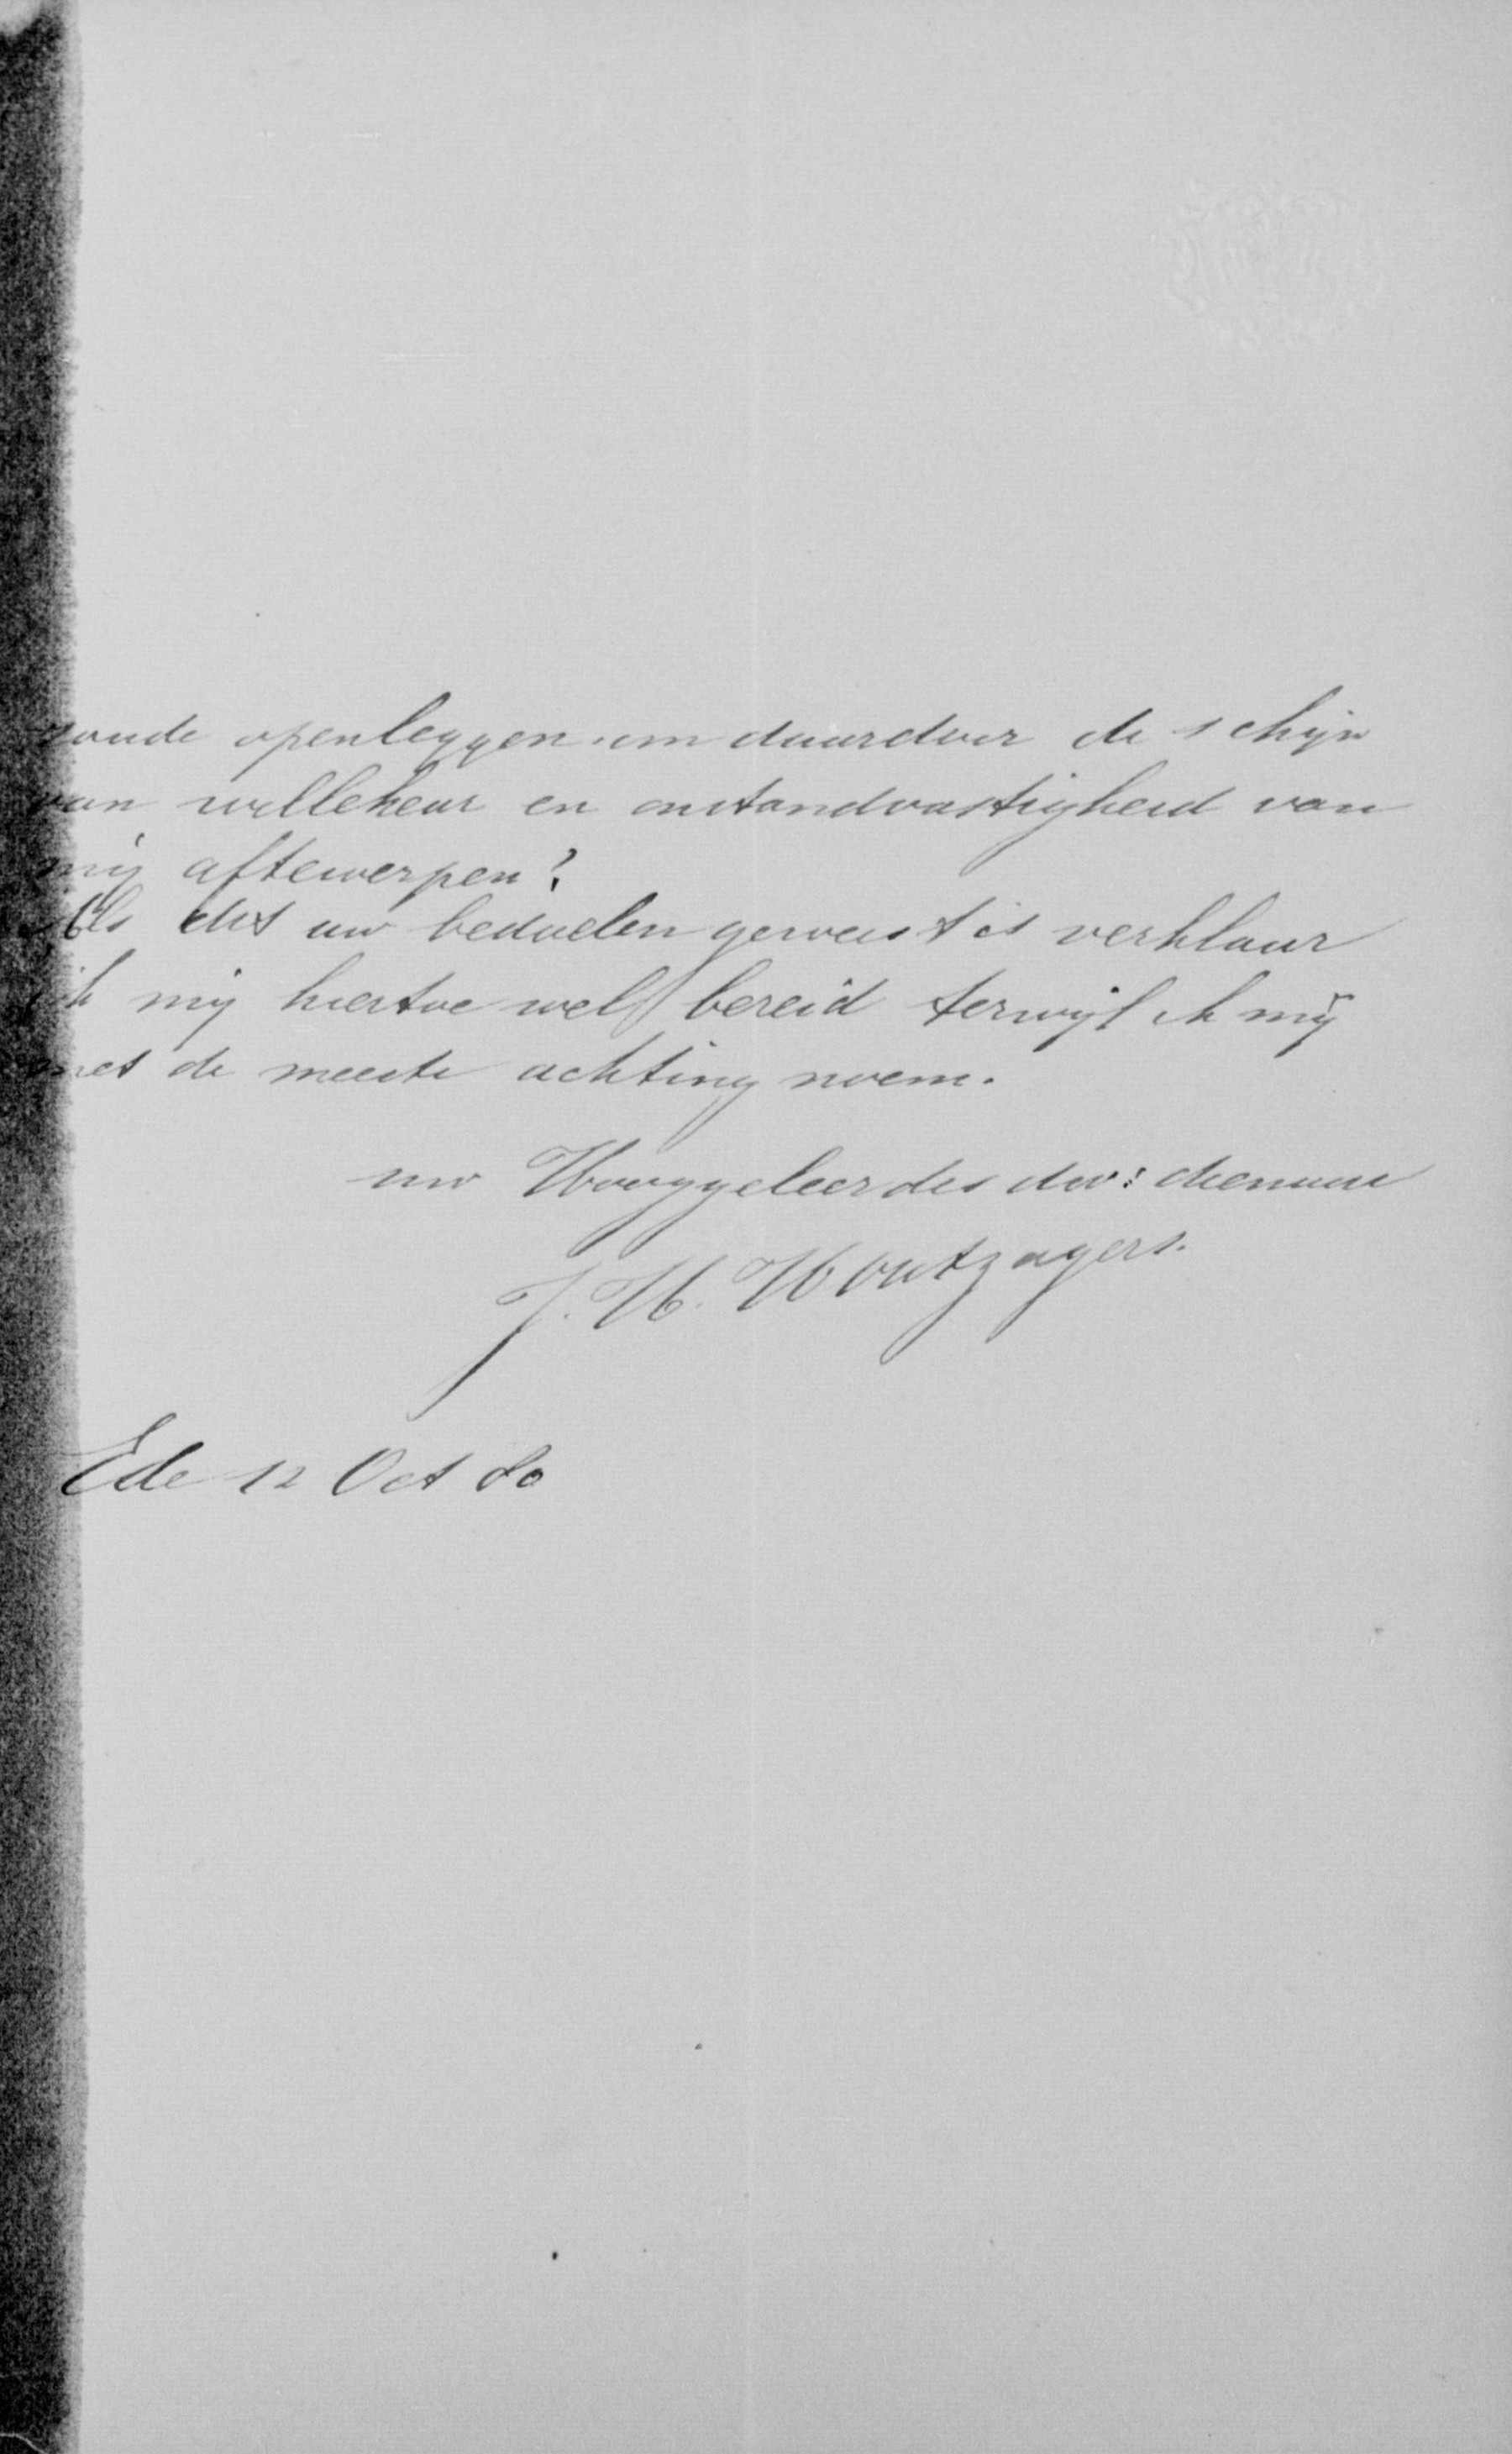 zoude openleggen om daardoor de schijn
van willekeur en onstandvastigheid van
mij aftewerpen?
Als dit uw bedoelen geweest is verklaar
ik mij hiertoe wel bereid terwijl ik mij
met de meeste achting noem.
uw Hooggeleerdes dw: dienaar
J. H. Houtzagers.
Ede 12 Oct 80